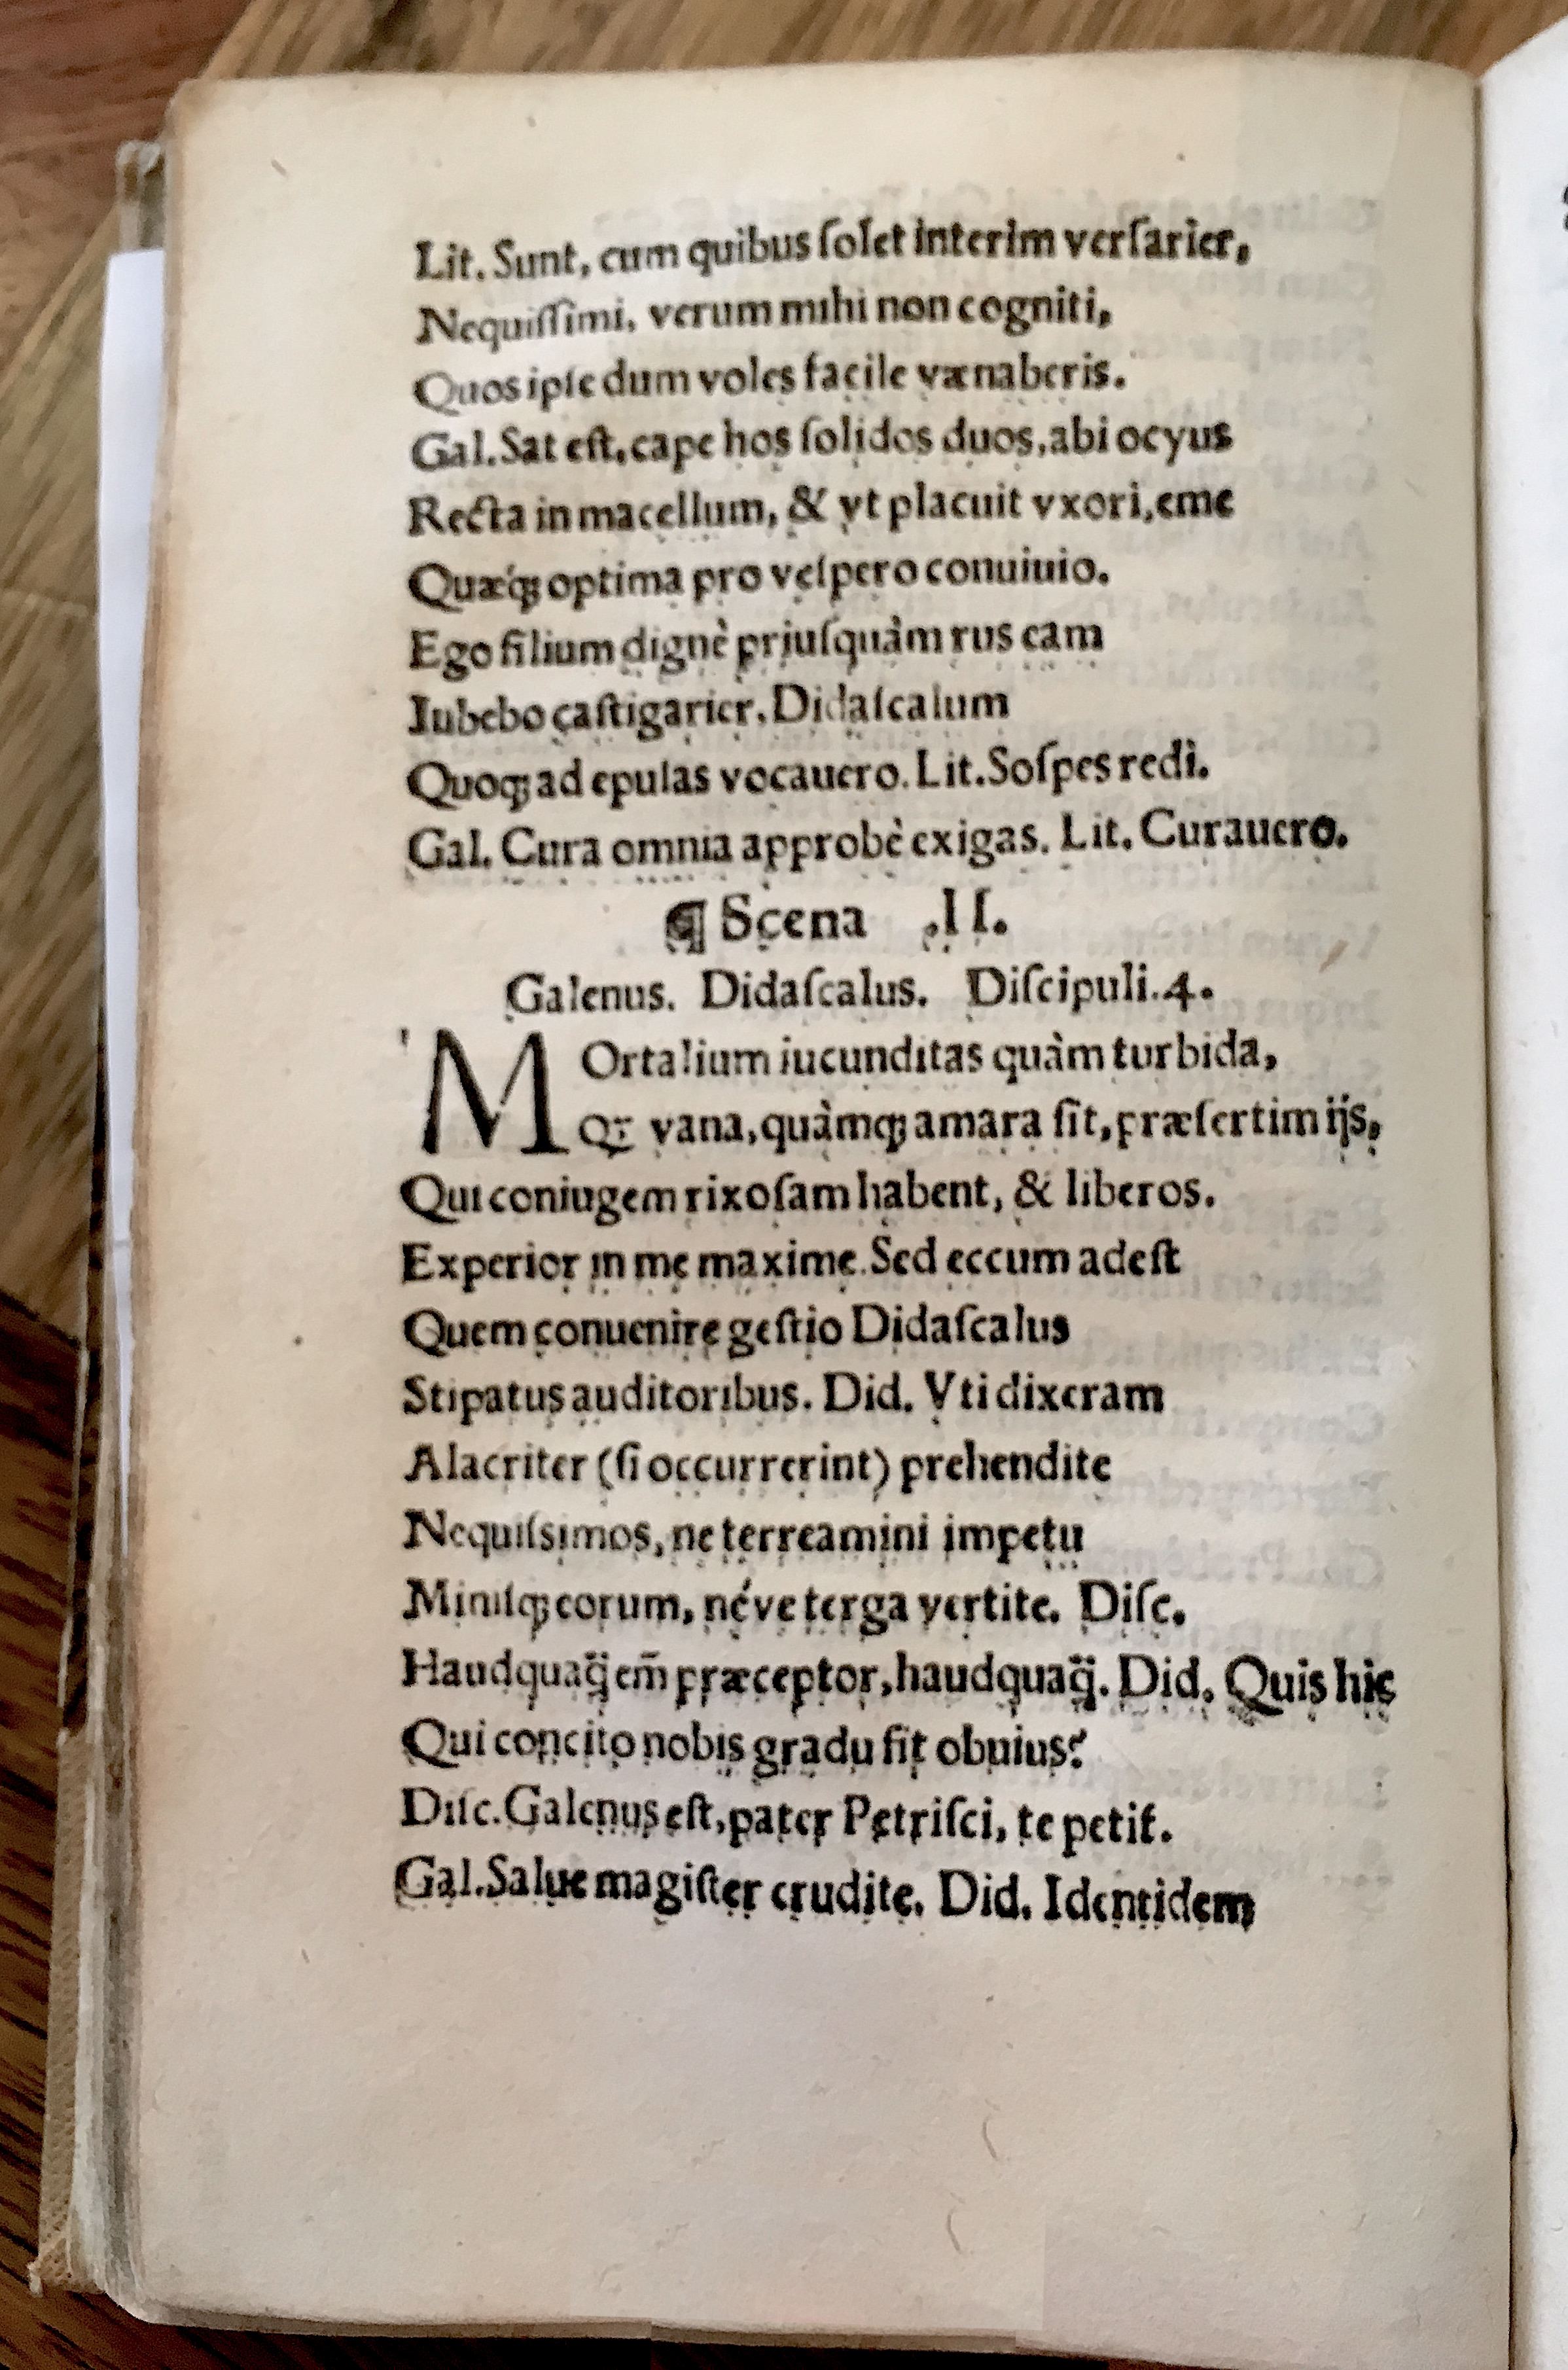 Lit. Sunt, cum quibus ſolet interim verſarier,
Nequiſſimi, verum mihi non cogniti,
Quos ipſe dum voles facile vænaberis.
Gal. Sat eſt, cape hos ſolidos duos, abi ocyus
Recta in macellum, & vt placuit vxori, eme
Quæq́ꝫ optima pro veſpero conuiuio.
Ego filium dignè priuſquàm rus eam
Iubebo caſtigarier. Didaſcalum
Quoqꝫ ad epulas vocauero. Lit. Soſpes redi.
Gal. Cura omnia approbè exigas. Lit. Curauero.
¶ Scena .II.
Galenus. Didaſcalus. Diſcipuli.4.
MOrtalium iucunditas quàm turbida,
vana, quàmqꝫ amara ſit, præſertim ijs,
Qui coniugem rixoſam habent, & liberos.
Experior in me maxime. Sed eccum adeſt
Quem conuenire geſtio Didaſcalus
Stipatus auditoribus. Did. Vti dixeram
Alacriter (ſi occurrerint) prehendite
Nequiſsimos, ne terreamini impetu
Miniſqꝫ eorum, néve terga vertite. Diſc.
Haudquaq̃ em̃ præceptor, haudquaq̃. Did. Quis hic
Qui concito nobis gradu fit obuius?
Diſc. Galenus eſt, pater Petriſci, te petit.
Gal. Salue magiſter erudite. Did. Identidem